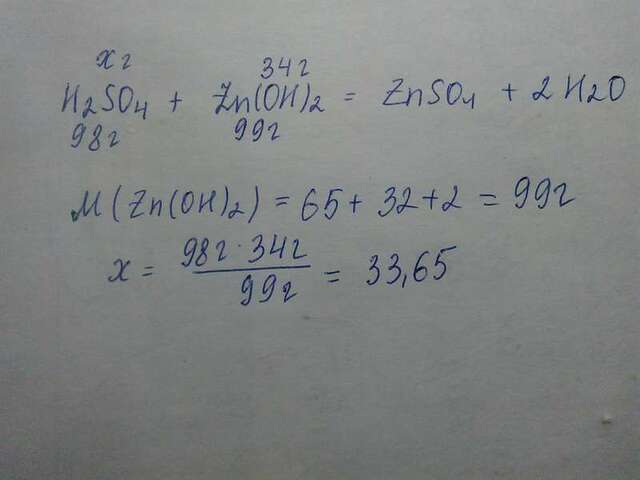 x г 34 г
H₂SO₄ + Zn(OH)₂ = ZnSO₄ + 2 H₂O
98 г 99 г
M (Zn(OH)₂) = 65 + 32 + 2 = 99 г
x = 98 г · 34 г / 99 г = 33,65